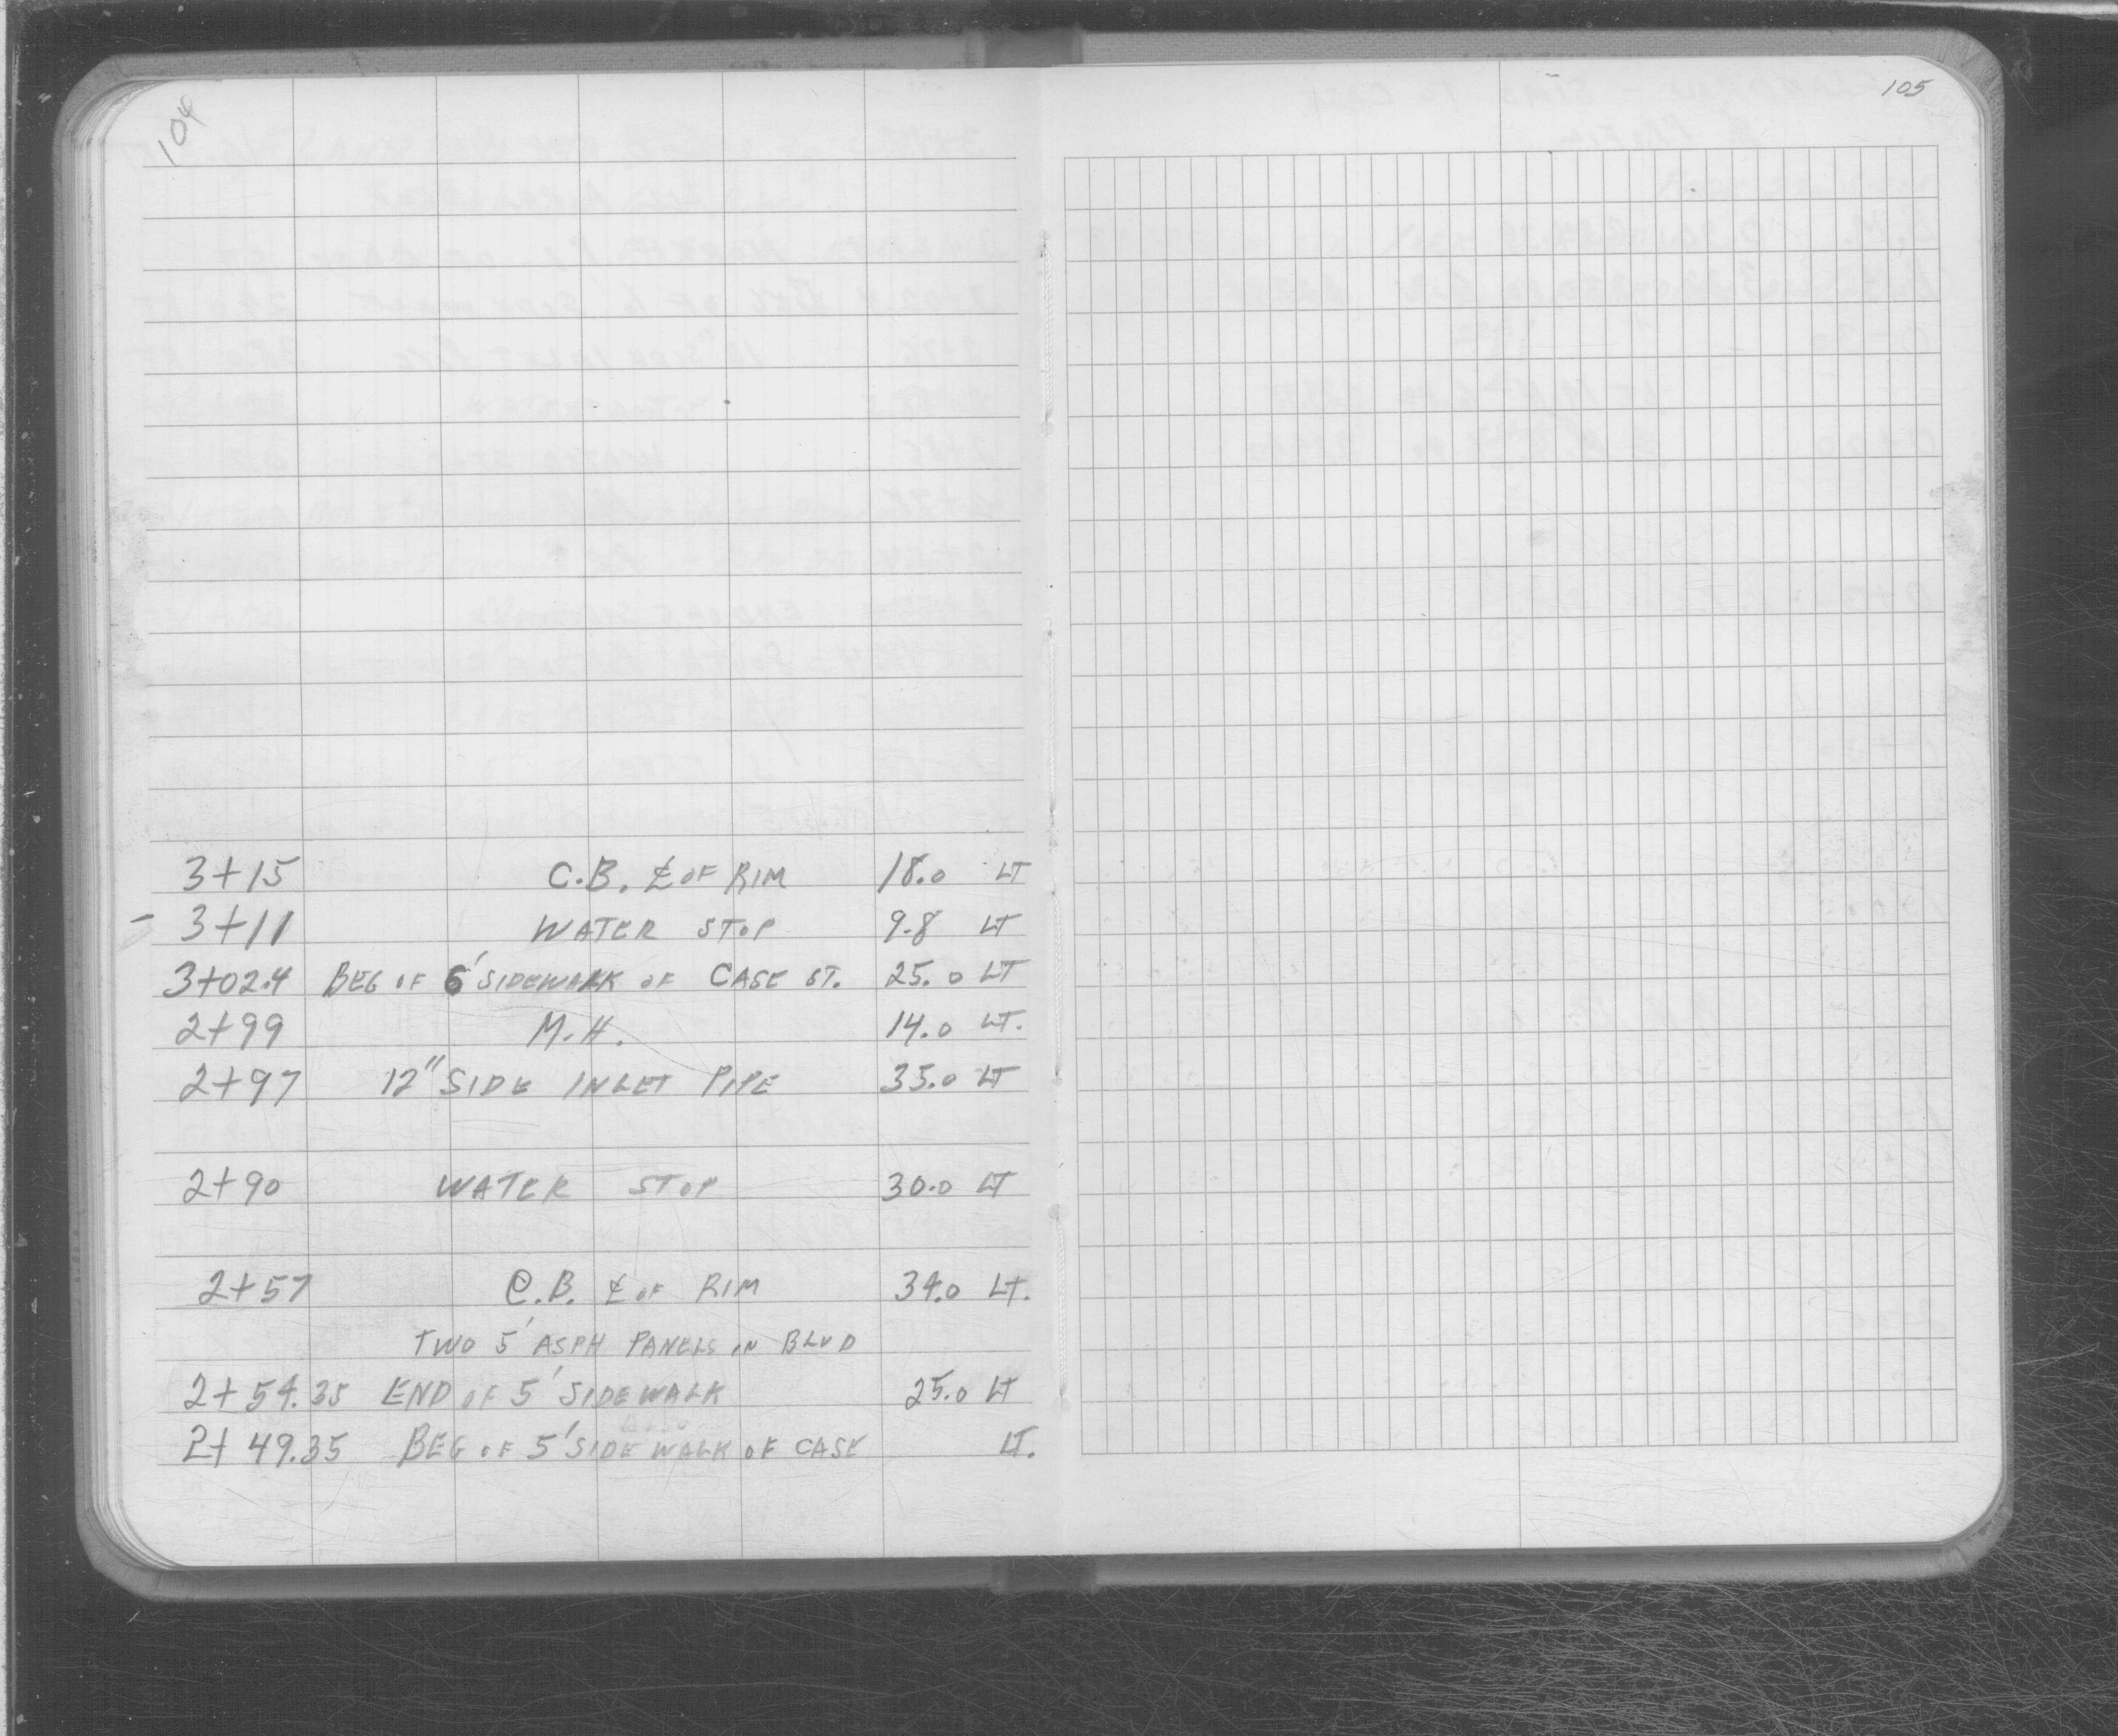 104
105
3+15 C.B. ℄ OF RIM 18.0 LT
- 3+11 WATER STOP 9.8 LT
3+02.4 BEG OF 6' SIDEWALK OF CASE ST. 25.0 LT
2+99 M.H. 14.0 LT.
2+97 12" SIDE INLET PIPE 35.0 LT
2+90 WATER STOP 30.0 LT
2+57 C.B. ℄ OF RIM 34.0 LT.
TWO 5' ASPH PANELS IN BLVD
2+54.35 END OF 5' SIDEWALK 25.0 LT
2+49.35 BEG OF 5' SIDEWALK OF CASE LT.